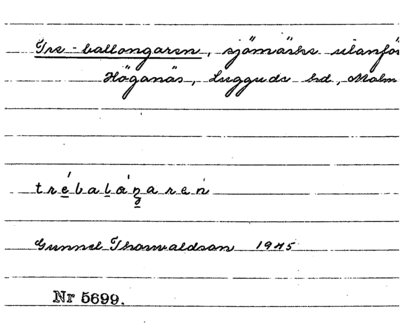 Tre-ballongaren, sjömärke utanför
Höganäs, Luggude hd, Malm
trébaláŋarén
Gunnel Thorwaldson 1975
Nr 5699.